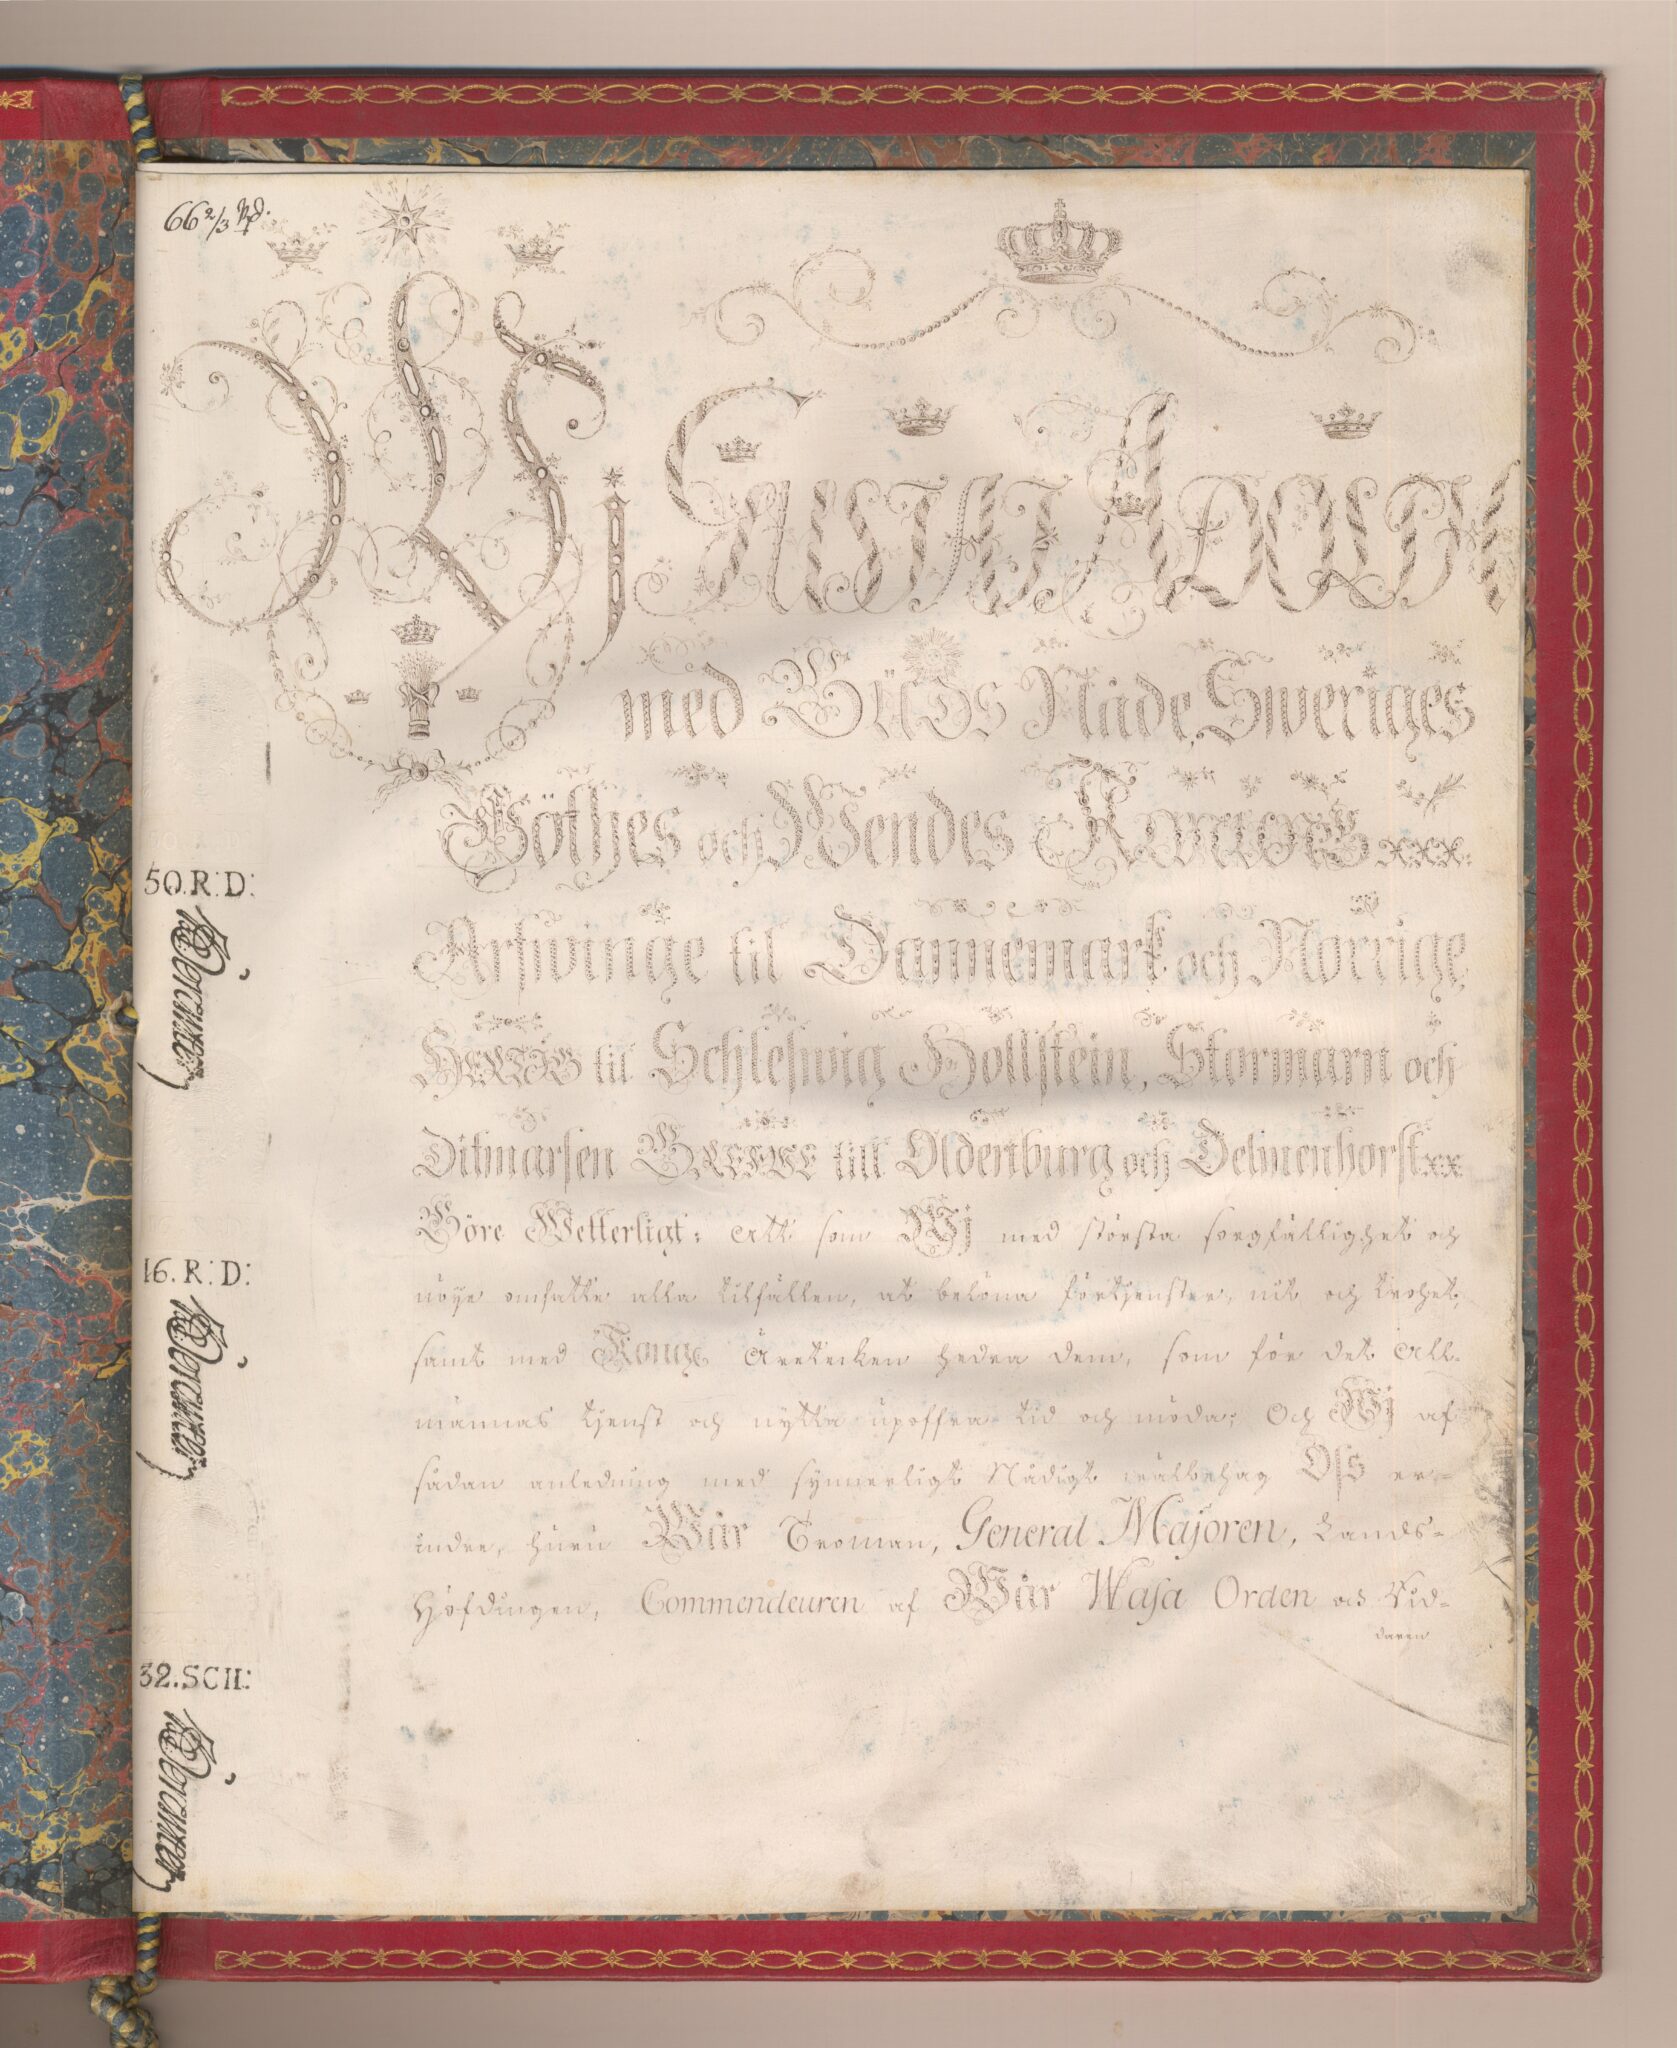 66 2/3 Rd.
Wi Gustaf Adolph
med Guds Nåde, Sweriges
Göthes och Wendes Konung xxx.
Arfwinge til Dannemark och Norrige,
Hertig til Schleswig Hollstein, Stormarn och
Ditmarsen Grefwe till Oldenburg och Delmenhorst xx
Göre Wetterligt: att som Wj med största sorgfällighet och
nöye omfatte alla tilfällen, at belöna förtjenster, nit och trohet,
samt med Kongl. äretecken hedra dem, som för det all-
männas tjenst och nytta upoffra tid och möda; Och Wj af
sådan anledning med synnerligt Nådigt wälbehag Oss er-
indre, huru Wår Troman, General Majoren, Lands-
Höfdingen, Commendeuren af Wår Wasa Orden och Rid-
daren
50. R: D:
16. R: D:
32. SCH: